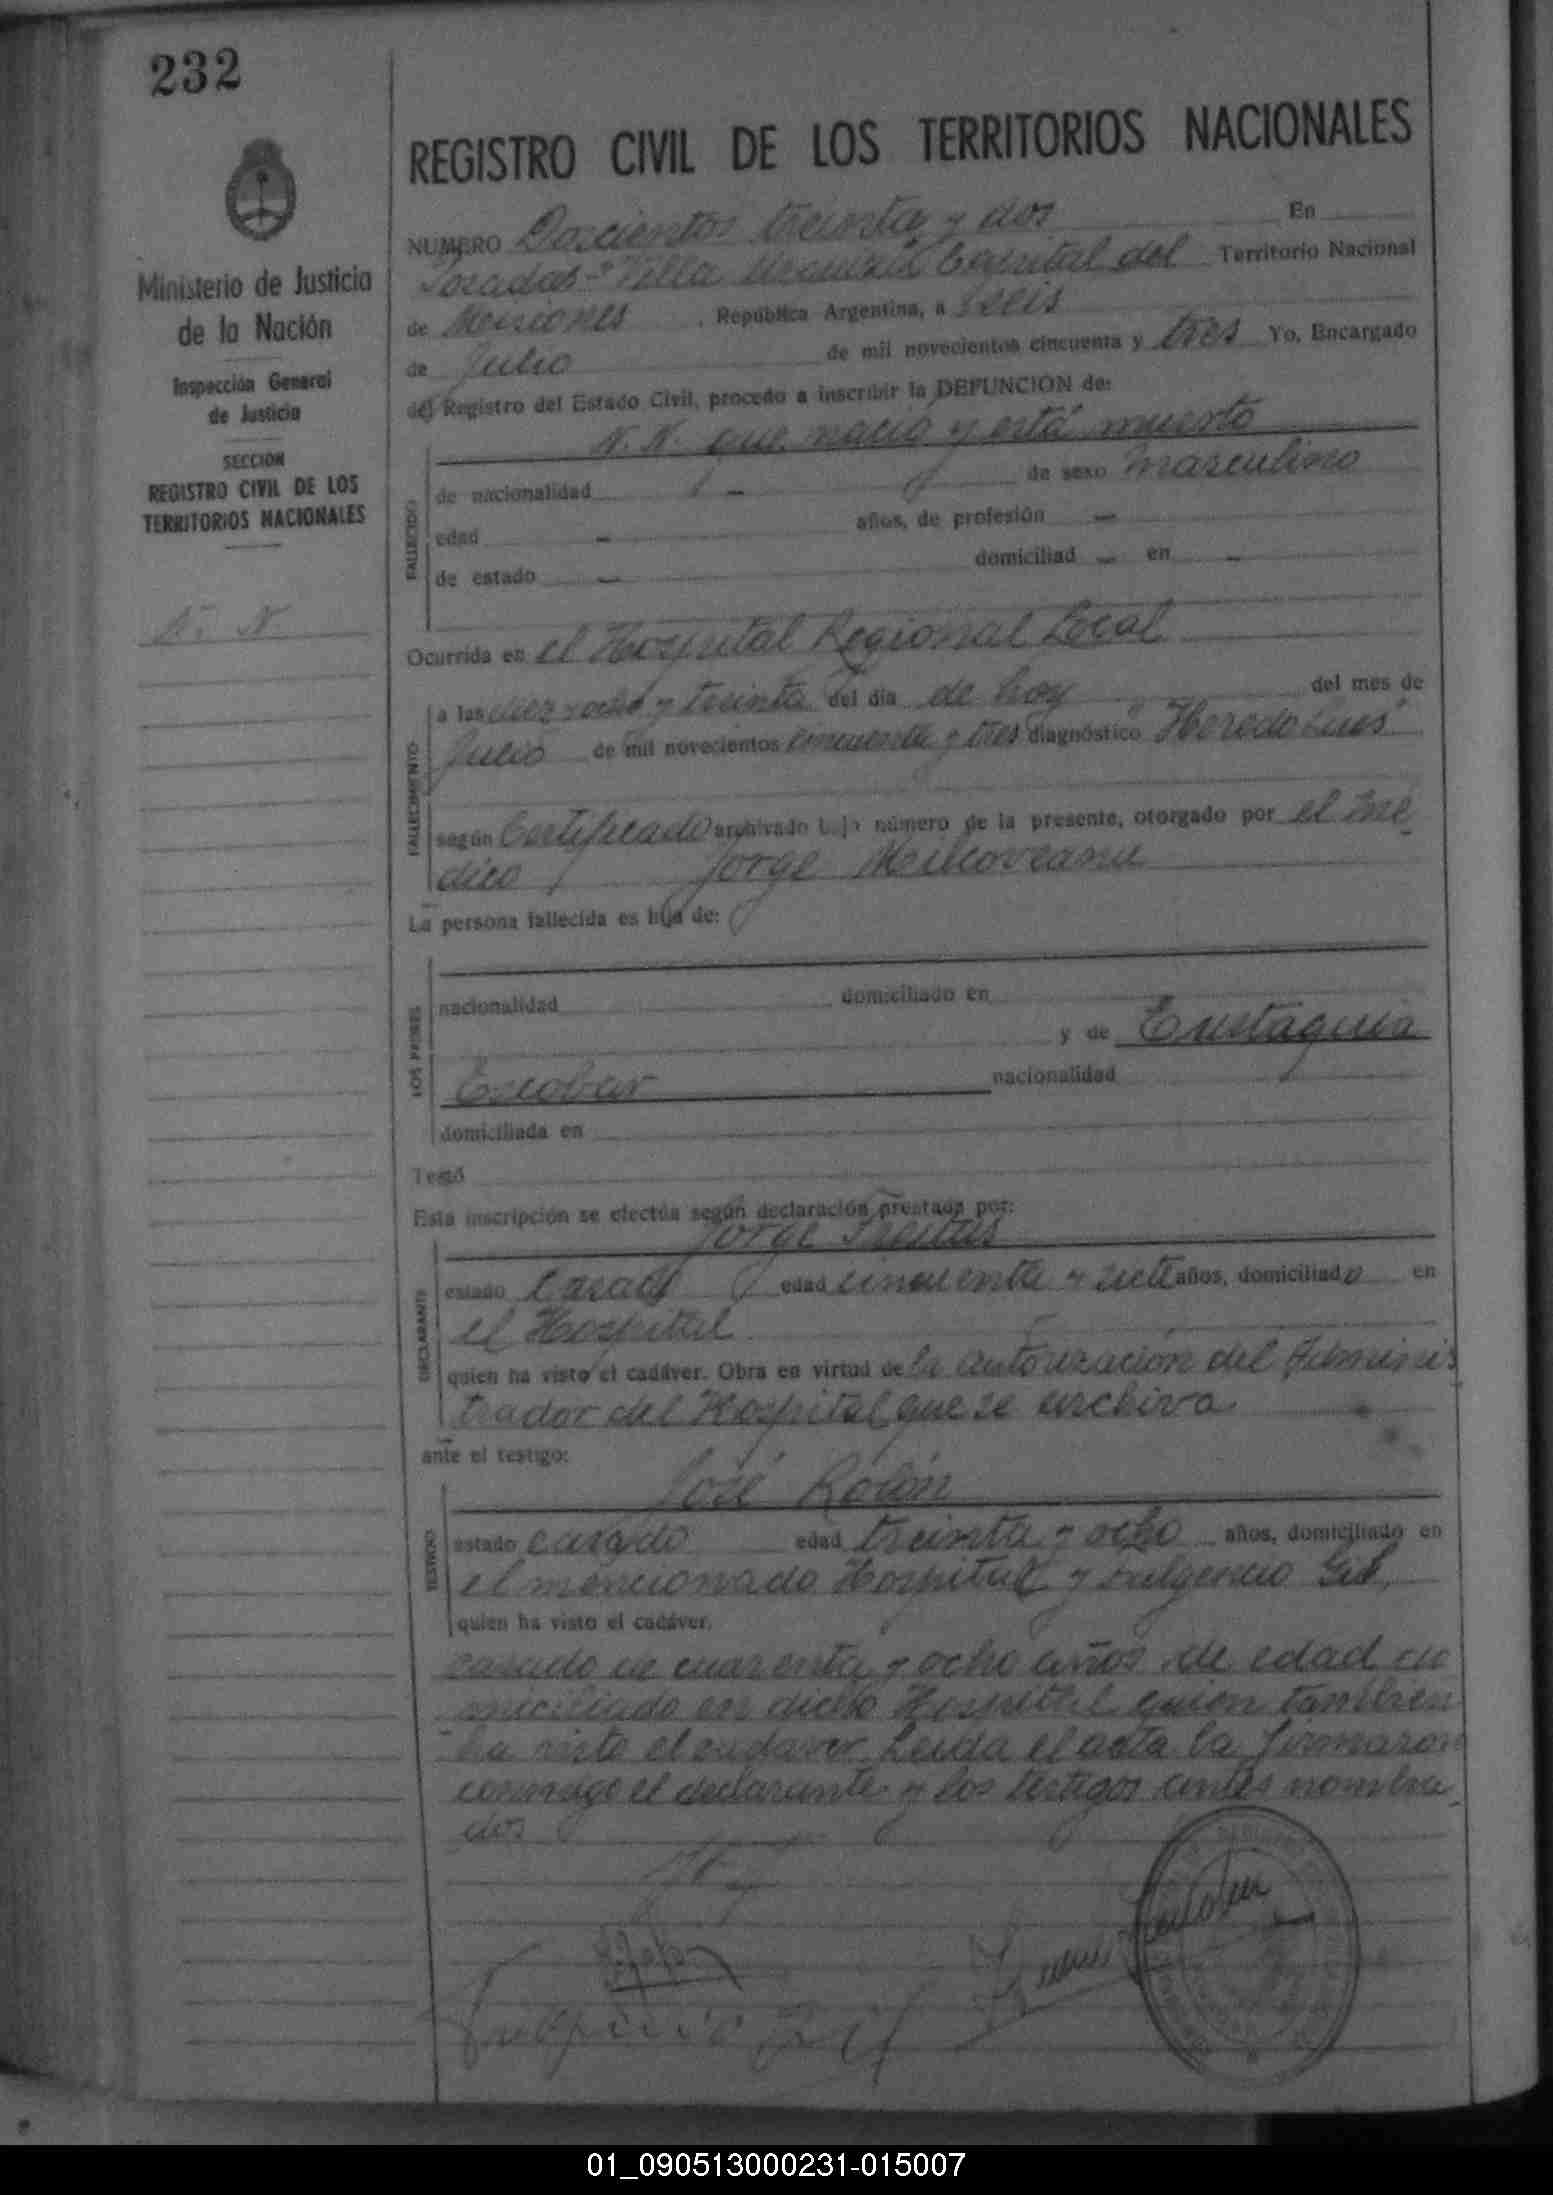 232
Ministerio de Justicia
de la Nación
Inspección General
de Justicia
SECCION
REGISTRO CIVIL DE LOS
TERRITORIOS NACIONALES
N. N
REGISTRO CIVIL DE LOS TERRITORIOS NACIONALES
NUMERO Doscientos treinta y dos En
Posadas - Villa Urquiza Capital del Territorio Nacional
de Misiones , República Argentina, a seis
de Julio de mil novecientos cincuenta y tres Yo, Encargado
del Registro del Estado Civil, procedo a inscribir la DEFUNCION de:
N. N. que nació y está muerto
FALLECIDO
de nacionalidad - de sexo masculino
edad - años, de profesión -
de estado - domiciliad - en -
Ocurrida en el Hospital Regional Local
FALLECIMIENTO
a las diez y ocho y treinta del día de hoy del mes de
Julio de mil novecientos cincuenta y tres diagnóstico "Heredo Lues"
según Certificado archivado bajo número de la presente, otorgado por el mé
dico Jorge Milcoveanu
La persona fallecida es hija de:
LOS PADRES
nacionalidad domiciliado en
y de Eustaquia
Escobar nacionalidad
domiciliada en
Testó
Esta inscripción se efectúa según declaración prestada por:
Jorge Freitas
DECLARANTE
estado Casado edad cincuenta y siete años, domiciliado en
el Hospital
quien ha visto el cadáver. Obra en virtud de la autorización del Adminis
trador del Hospital que se archiva.
ante el testigo:
José Rolón
TESTIGO
estado casado edad treinta y ocho años, domiciliado en
el mencionado Hospital y Fulgencio Gil,
quien ha visto el cadáver.
casado de cuarenta y ocho años de edad do
miciliado en dicho Hospital quien tambien
ha visto el cadaver. Leida el acta la firmaron
conmigo el declarante y los testigos antes nombra
dos
Fulgencio Gil
01_090513000231-015007